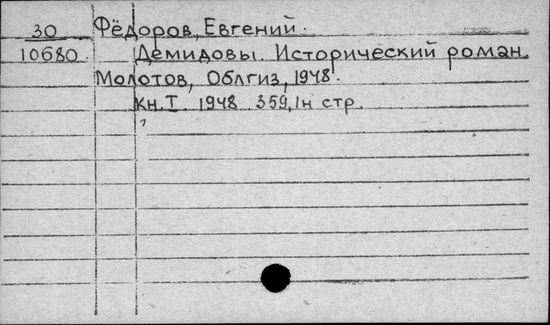 30 Фёдоров, Евгений.
10680. Демидовы. Исторический роман.
Молотов, Облгиз, 1948.
Кн. I. 1948. 359, 1н стр.